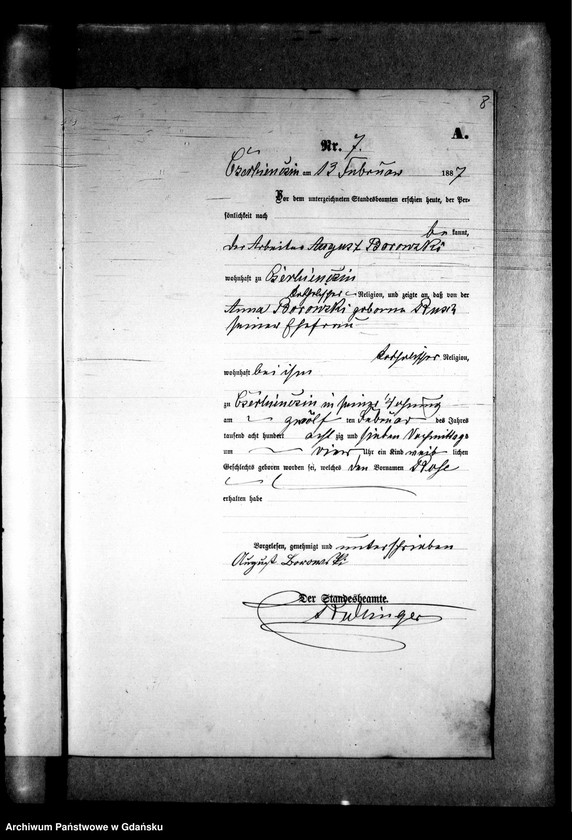 8
A.
Nr. 7.
Czerbienczin am 13 Februar 1887
Vor dem unterzeichneten Standesbeamten erschien heute, der Per-
sönlichkeit nach
be kannt,
der Arbeiter August Borowski
wohnhaft zu Czerbienczin
katholischer Religion, und zeigte an, daß von der
Anna Borowski geborne
seiner Ehefrau
katholischer Religion,
wohnhaft bei ihm
zu Czerbienczin in seiner Wohnung
am zwölf ten Februar des Jahres
tausend acht hundert acht zig und sieben Vormittags
um vier Uhr ein Kind weib lichen
Geschlechts geboren worden sei, welches den Vornamen Rosa
erhalten habe
Vorgelesen, genehmigt und unterschrieben
August Borowski
Der Standesbeamte.
Archiwum Państwowe w Gdańsku